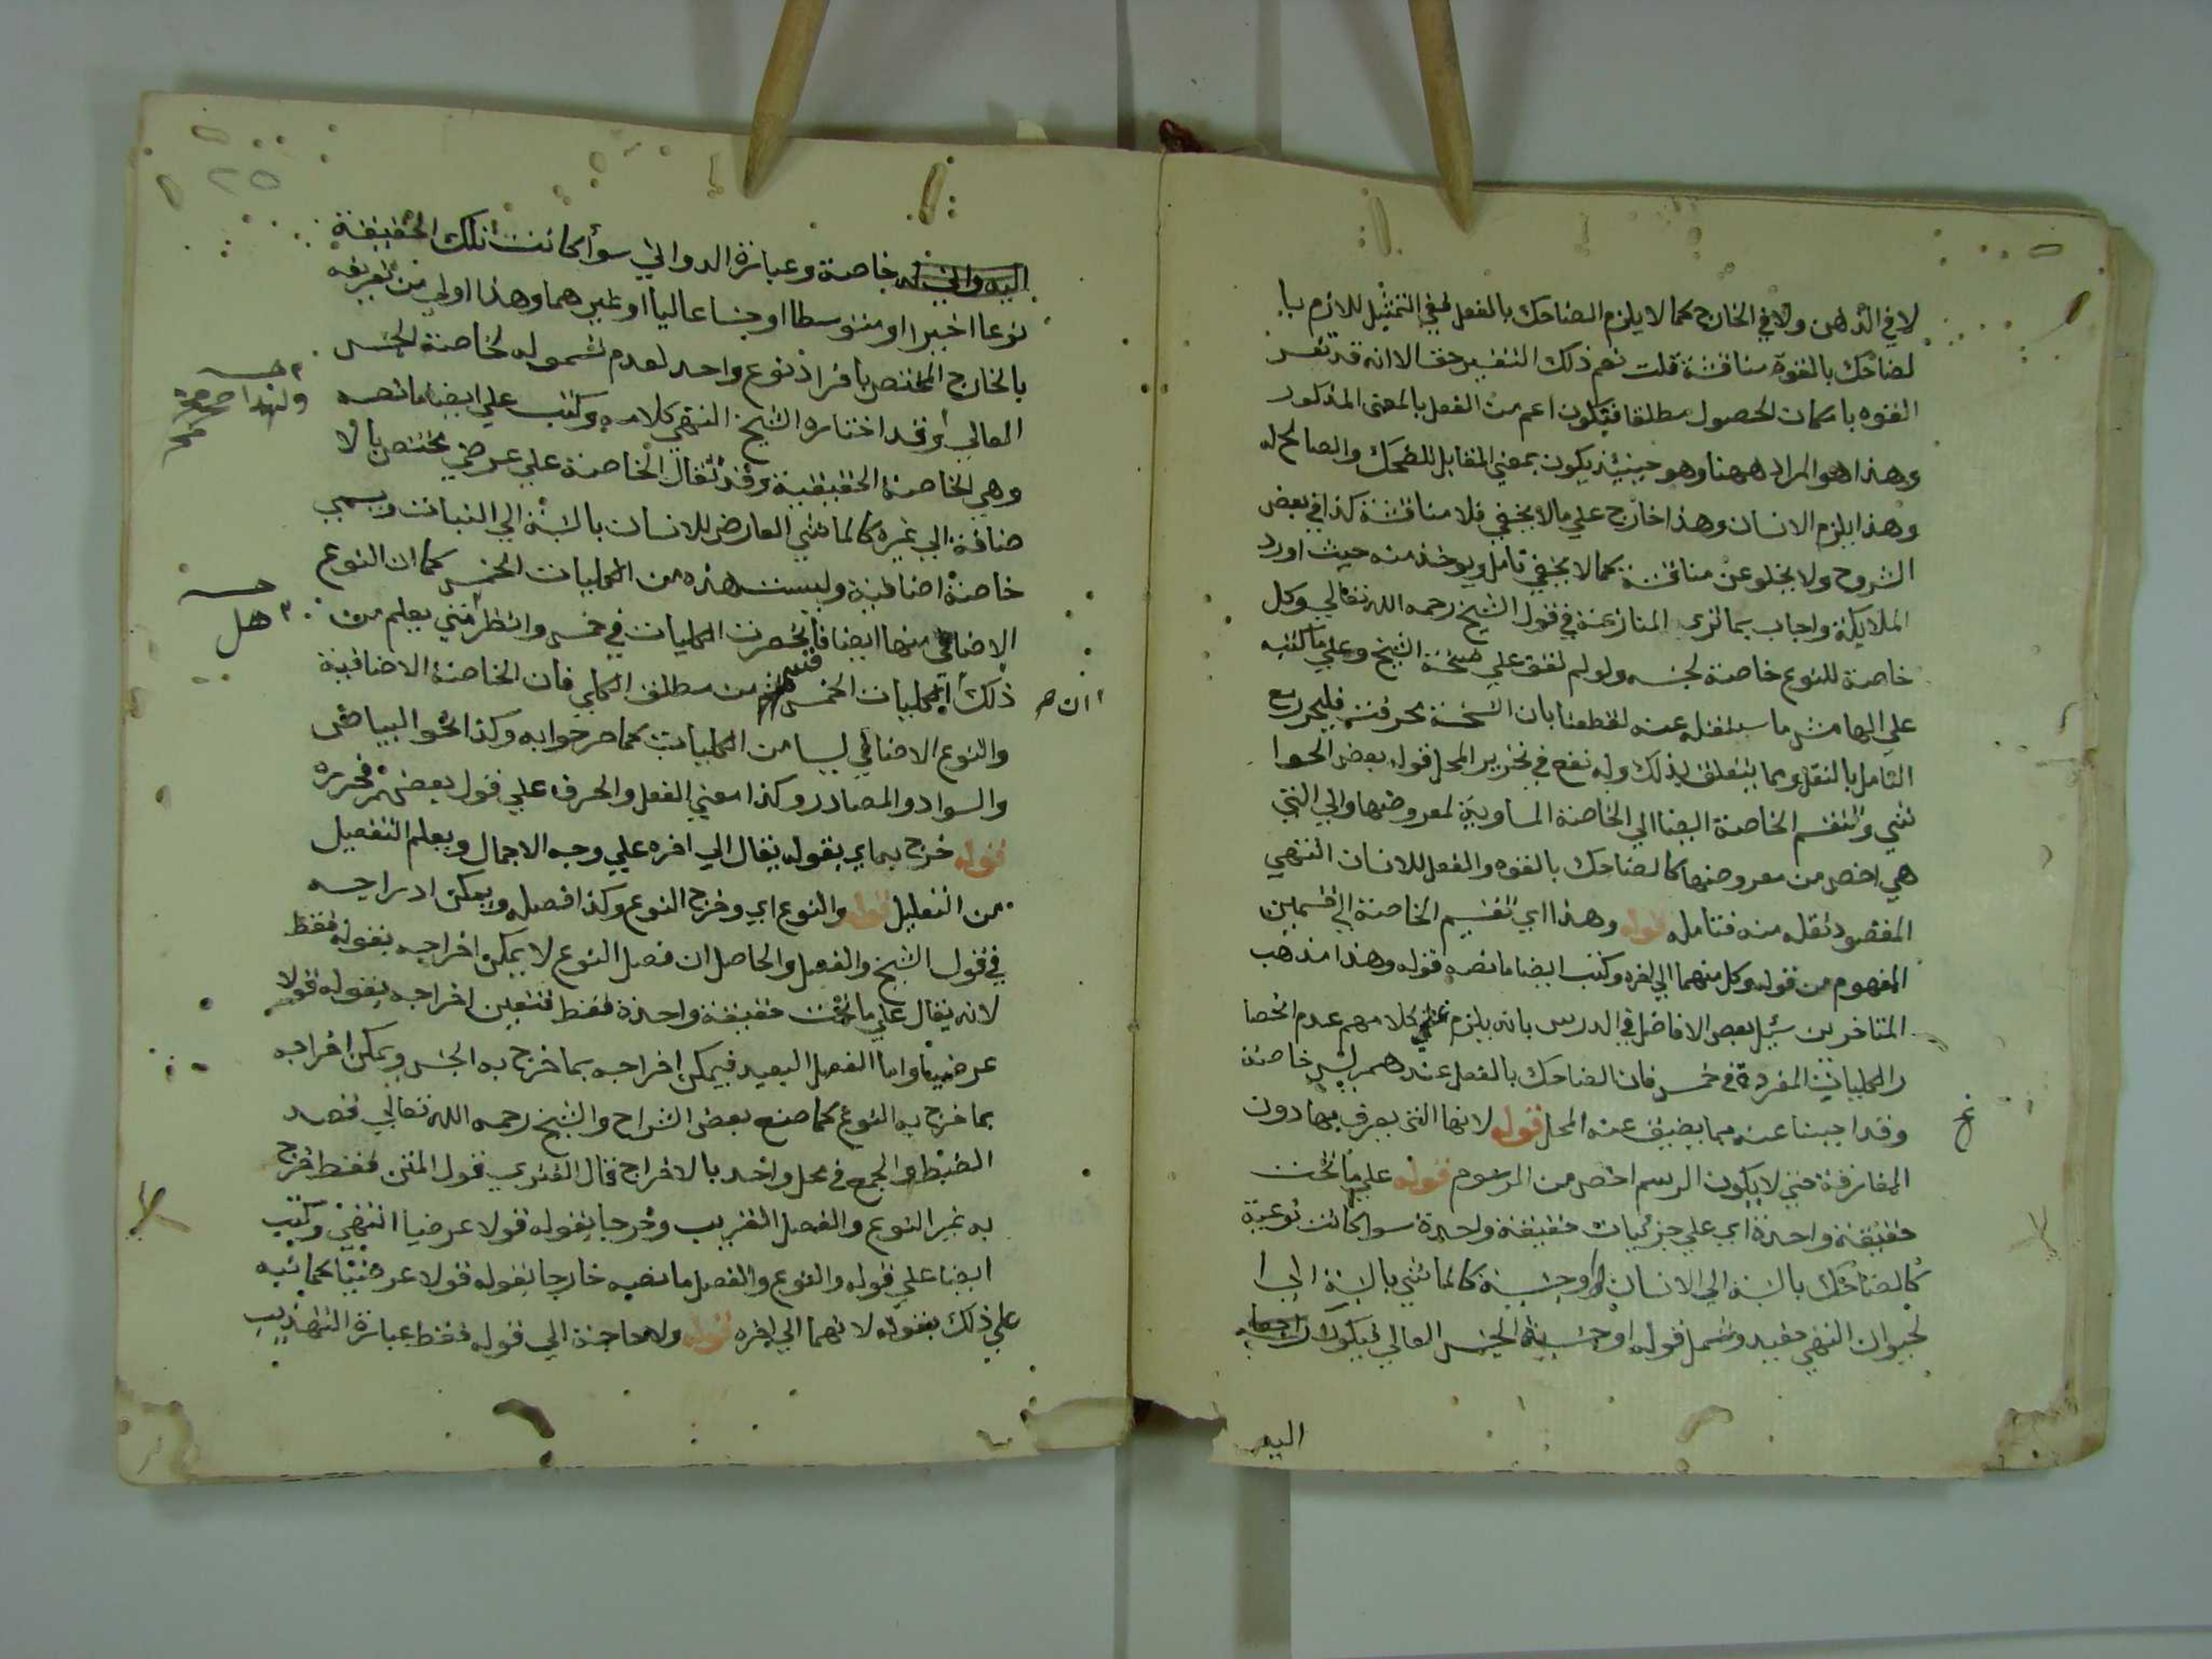 لا في الذهن ولا في الخارج كما لا يلزم الضاحك بالفعل ففي التمثيل للازم با
لضاحك بالقوة مناقشة قلت نعم ذلك التفسير حق الا انه قد تفسر
القوه بامكان الحصول مطلقا فتكون اعم من الفعل بالمعنى المذكور
وهذا هو المراد ههنا وهو حينيذ يكون بمعني المقابل للضحك والصالح له
وهذا يلزم الانسان وهذا خارج علي ما لا يخفي فلا مناقشة كذا في بعض
الشروح ولا يخلو عن مناقشة كما لا يخفي تامل ويوخذ منه حيث اورد
الملايكة واجاب بما تري المنازعة في قول الشيخ رحمه الله تعالي وكل
خاصة للنوع خاصة لجنسه ولو لم نقف علي نسخة الشيخ وعلي ما كتبه
علي الهامش ما سننقله عنه لقطعنا بان النسخة تحرفت فليحرر مع
التامل بالنقل وبما يتعلق بذلك وله نفع في تحرير المحل قوله بعض الحوا
شي وتنقسم الخاصة ايضا الي الخاصة المساوية لمعروضها والي التي
هي اخص من معروضها كالضاحك بالقوه والفعل للانسان انتهي
المقصود نقله منه فتامله قوله وهذا اي تقسيم الخاصة الي قسمين
المفهوم من قوله وكل منهما الي اخره وكتب ايضا ما نصه قوله وهذا مذهب
المتاخرين سيل بعض الافاضل في الدرس بانه يلزم علي كلامهم عدم انحصا
ر الكليات المفردة في خمس فان الضاحك بالفعل عندهم ليس خاصة
وقد اجبنا عنه بما يضيق عنه المحل قوله لانها التي يعرف بها دون
المفارقة حتي لا يكون الرسم اخص من المرسوم قوله علي ما تحت
حقيقة واحدة اي علي جزئيات حقيقة واحدة سوا كانت نوعية
كالضاحك بالنسبة الي الانسان او جنسية كالماشي بالنسبة الي ا
لحيوان انتهي مفيد وشمل قوله او جنسية الجنس العالي فيكون
اليه
٢٥
خاصة وعبارة الدواني سوأ كانت تلك الحقيقة
نوعا اخيرا او متوسطا او جنسا عاليا او غيرهما وهذا اولي من تعريفه
بالخارج المختص بافراد نوع واحد لعدم شموله لخاصة الجنس
العالي وقد اختاره الشيخ انتهي كلامه وكتب علي ايضا ما نصه
وهي الخاصة الحقيقية وقد تقال الخاصة علي عرضي مختص بالا
ضافة الي غيره كالماشي العارض للانسان بالنسبة الي النبات ويسمي
خاصة اضافية وليست هذه من الكليات الخمس كما ان النوع
الاضافي منها ايضا فانحصرت الكليات في خمس وانظر متي يعلم من
ذلك الكليات الخمس قسم من مطلق الكلي فان الخاصة الاضافية
والنوع الاضافي ليسا من الكليات كما مر جوابه وكذا نحو البياض
والسواد والمصادر وكذا معني الفعل والحرف علي قول بعضهم فحرره
قوله خرج بما اي بقوله يقال الي اخره علي وجه الاجمال ويعلم التفصيل
من التعليل قوله والنوع اي وخرج النوع وكذا فصله ويمكن ادراجه
في قول الشيخ والفصل والحاصل ان فصل النوع لا يمكن اخراجه بقوله فقط
لانه يقال علي ما تحت حقيقة واحدة فقط فتعين اخراجه بقوله قولا
عرضيا واما الفصل البعيد فيمكن اخراجه بما خرج به الجنس ويمكن اخراجه
بما خرج به النوع كما صنع بعض الشراح والشيخ رحمه الله تعالي قصد
الضبط والجمع في محل واحد بالاخراج قال الفنري قول المتن فقط اخرج
به غير النوع والفصل القريب وخرجا بقوله قولا عرضيا انتهي وكتب
ايضا علي قوله والنوع والفصل ما نصه خارجا بقوله قولا عرضيا كما نبه
علي ذلك بقوله لانهما الي اخره قوله ولا حاجة الي قوله فقط عبارة التهذيب
ولهذا
هل
ان